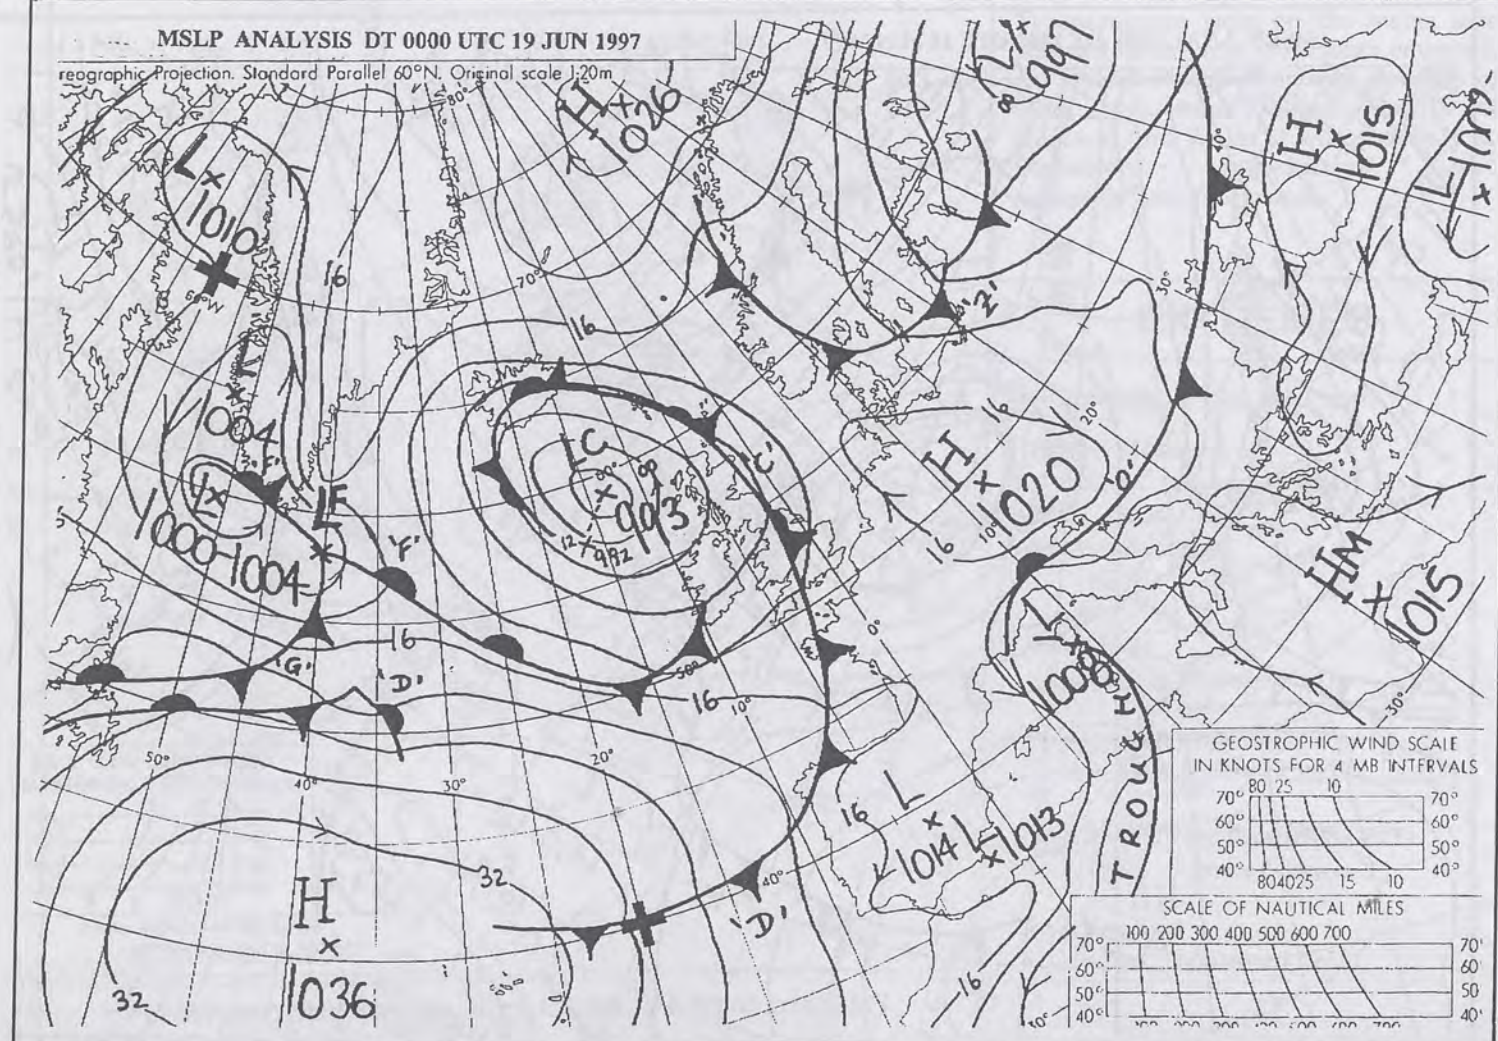 MSLP ANALYSIS DT 0000 UTC 19 JUN 1997
reographic Projection. Standard Parallel 60°N. Original scale 1:20m
80°
H
1026
997
H
1015
L
1009
L
1010
60°W
16
70°
16
'Z'
40°
30°
20°
L
1004
'F'
L
1000-1004
LF
'F'
LC
993
992
'C'
H
1020
16
16
10°
0°
'D'
HM
1015
30°
L
1008
TROUGH
16
'G'
'D'
16
50°
10°
50°
40°
30°
20°
L
1014
L
1013
16
32
H
1036
32
40°
'D'
16
30°
GEOSTROPHIC WIND SCALE
IN KNOTS FOR 4 MB INTERVALS
80 25 10
70° 70°
60° 60°
50° 50°
40° 40°
80 40 25 15 10
SCALE OF NAUTICAL MILES
100 200 300 400 500 600 700
70° 70°
60° 60
50° 50
40° 40°
100 200 300 400 500 600 700